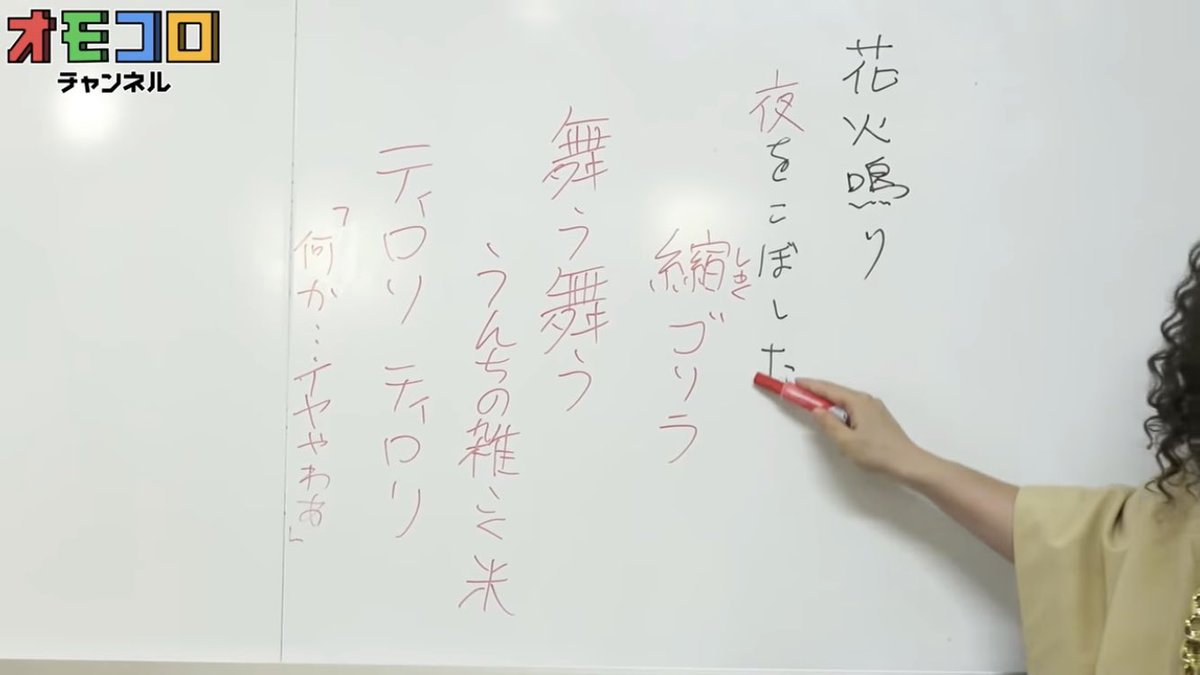 オモコロ
チャンネル
花火鳴り
夜をこぼした
縮ゴリラ
しゅく
舞う舞う
うんちの雑こく米
ティロリ ティロリ
「何か…イヤやわあ」